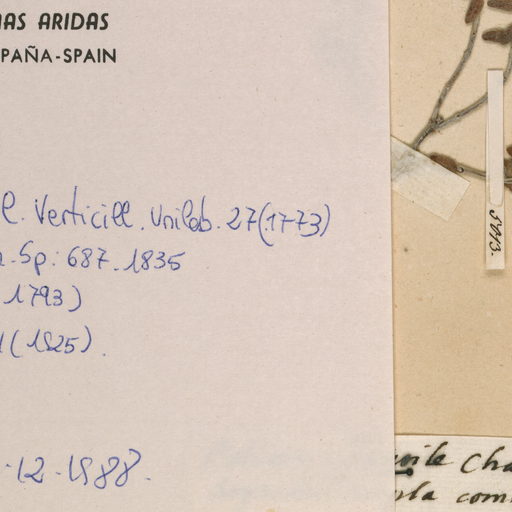 NAS ARIDAS
PAÑA-SPAIN
l. Verticill. Unilab. 27(1773)
. Sp. 687. 1835
1793)
(1825).
.12.1988.
Cha
com